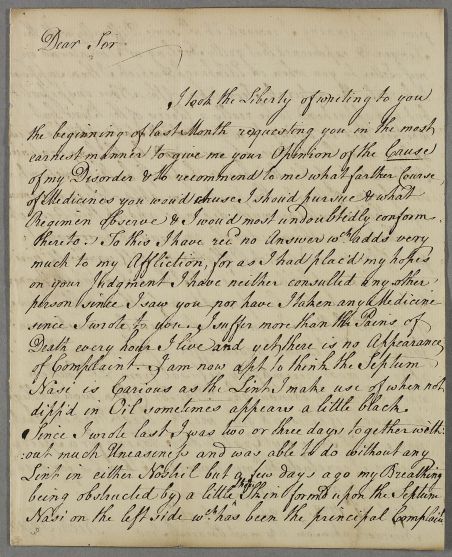 Dear Sir
I took the Liberty of writing to you
the beginning of last Month requesting you in the most
earnest manner to give me your Opinion of the Cause
of my Disorder & to recommend to me what farther Course
of Medicines you woud chuse I shoud pursue & what
Regimen observe & I woud most undoubtedly conform
thereto. To this I have recd no Answer wch adds very
much to my Affliction, for as I had placid my hopes
on your Judgment I have neither consulted any other
person since I saw you nor have I taken any Medicine
since I wrote to you. I suffer more than the Pains of
Death every hour I live and yet there is no Appearance
of Complaint. I am now apt to think the Septum
Nasi is Carious as the Lint I make use of when not
dipp'd in Oil sometimes appears a little black.
Since I wrote last I was two or three days together with-
out much Uneasiness and was able to do without any
Lint in either Nostril but a few days ago my Breathing
being obstructed by a little Skin form'd upon the Septum
Nasi on the left side wch has been the principal Complain